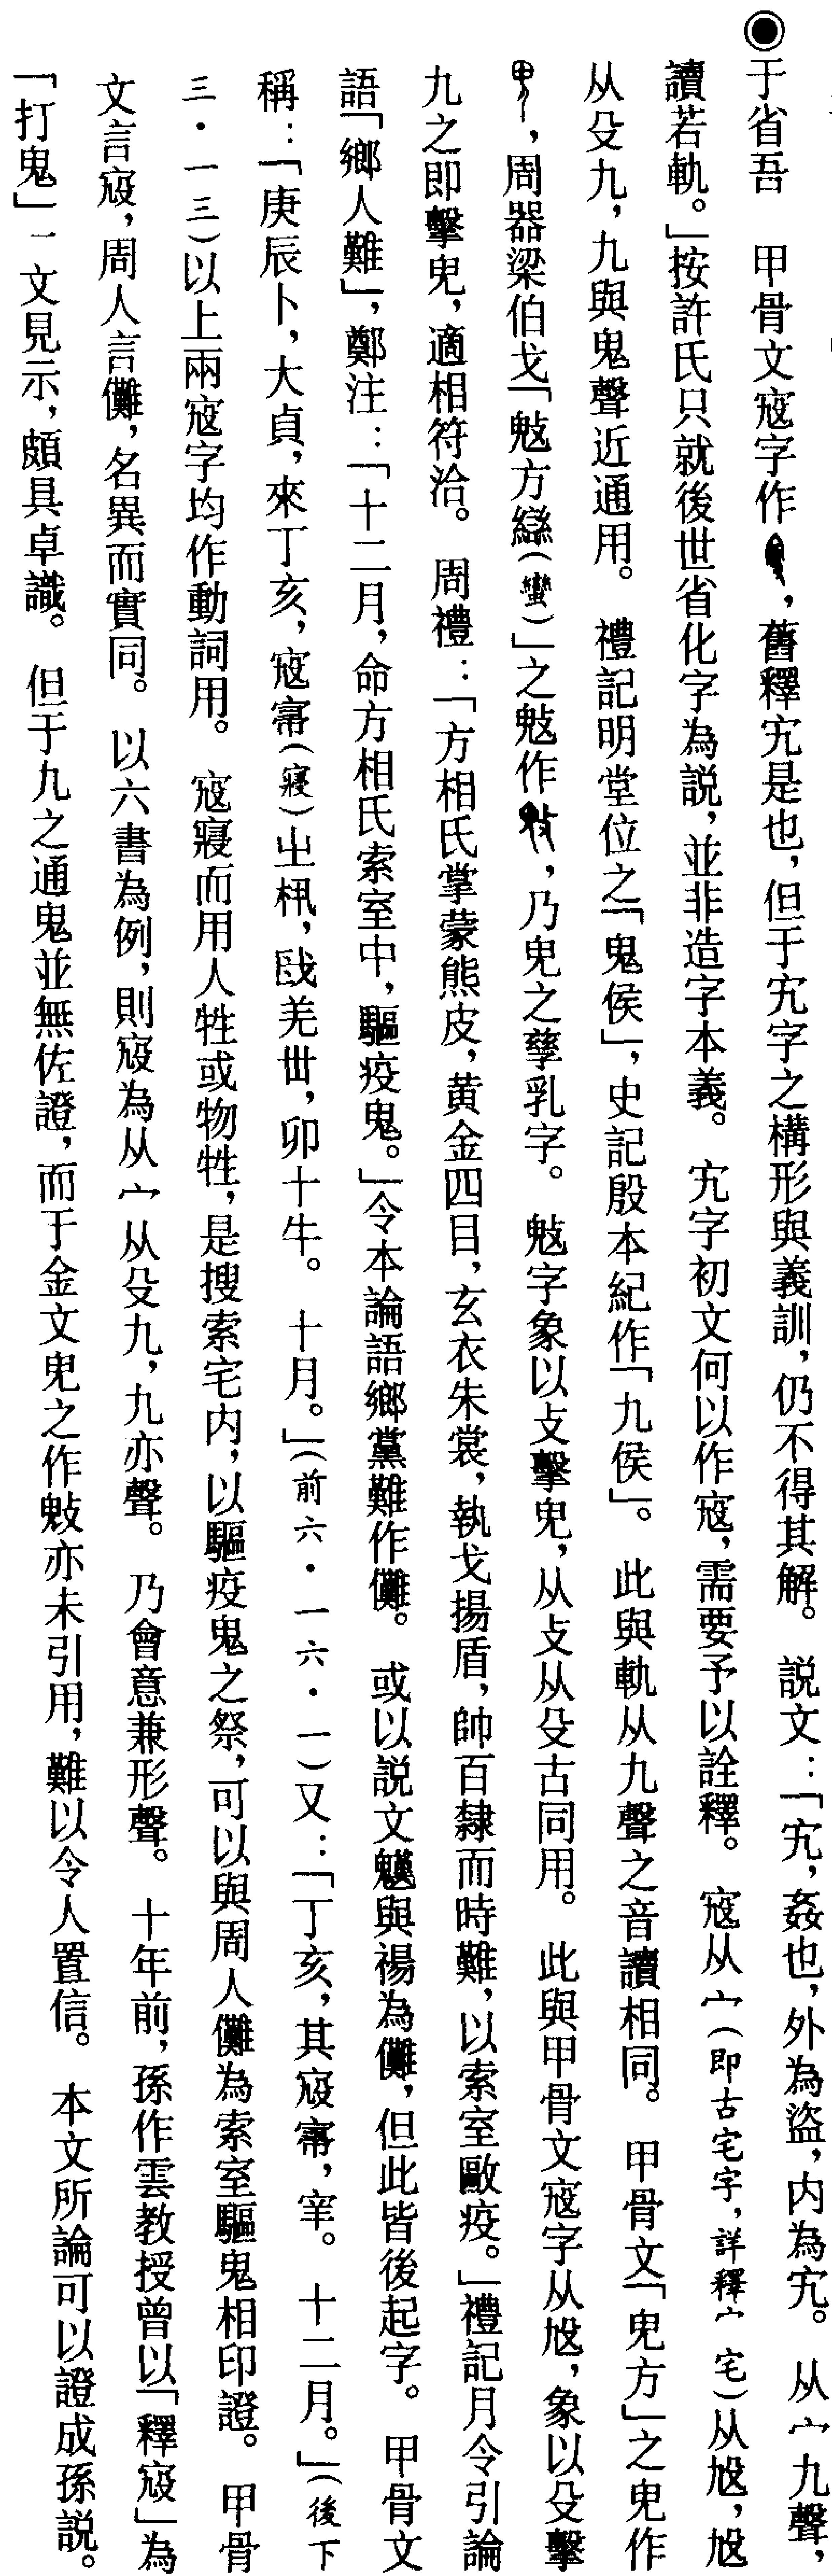 ◉于省吾　甲骨文𡨥字作，舊釋宄是也，但于宄字之構形與義訓，仍不得其解。　説文：「宄，姦也，外為盜，内為宄。　从宀九聲，
讀若軌。」按許氏只就後世省化字為説，並非造字本義。　宄字初文何以作𡨥，需要予以詮釋。　𡨥从宀（即古宅字，詳釋宀　宅）从㲃，㲃
从殳九，九與鬼聲近通用。　禮記明堂位之「鬼侯」，史記殷本紀作「九侯」。　此與軌从九聲之音讀相同。　甲骨文「鬼方」之鬼作
，周器梁伯戈「鬾方䜌（蠻）」之鬾作，乃鬼之孳乳字。　鬾字象以攴擊鬼，从攴从殳古同用。　此與甲骨文𡨥字从㲃，象以殳擊
九之即擊鬼，適相符洽。　周禮：「方相氏掌蒙熊皮，黄金四目，玄衣朱裳，執戈揚盾，帥百隸而時難，以索室毆疫。」禮記月令引論
語「鄉人難」，鄭注：「十二月，命方相氏索室中，驅疫鬼。」令本論語鄉黨難作儺。　或以説文魌與裼為儺，但此皆後起字。　甲骨文
稱：「庚辰卜，大貞，來丁亥，𡨥㝲（寢）㞢𣏟，歲羌卅，卯十牛。　十月。」（前六・一六・一）又：「丁亥，其𡨥㝲，宰。　十二月。」（後下
三・一三）以上兩𡨥字均作動詞用。　𡨥寢而用人牲或物牲，是搜索宅内，以驅疫鬼之祭，可以與周人儺為索室驅鬼相印證。　甲骨
文言𡨥，周人言儺，名異而實同。　以六書為例，則𡨥為从宀从殳九，九亦聲。　乃會意兼形聲。　十年前，孫作雲教授曾以「釋𡨥」為
「打鬼」一文見示，頗具卓識。　但于九之通鬼並無佐證，而于金文鬼之作鬾亦未引用，難以令人置信。　本文所論可以證成孫説。